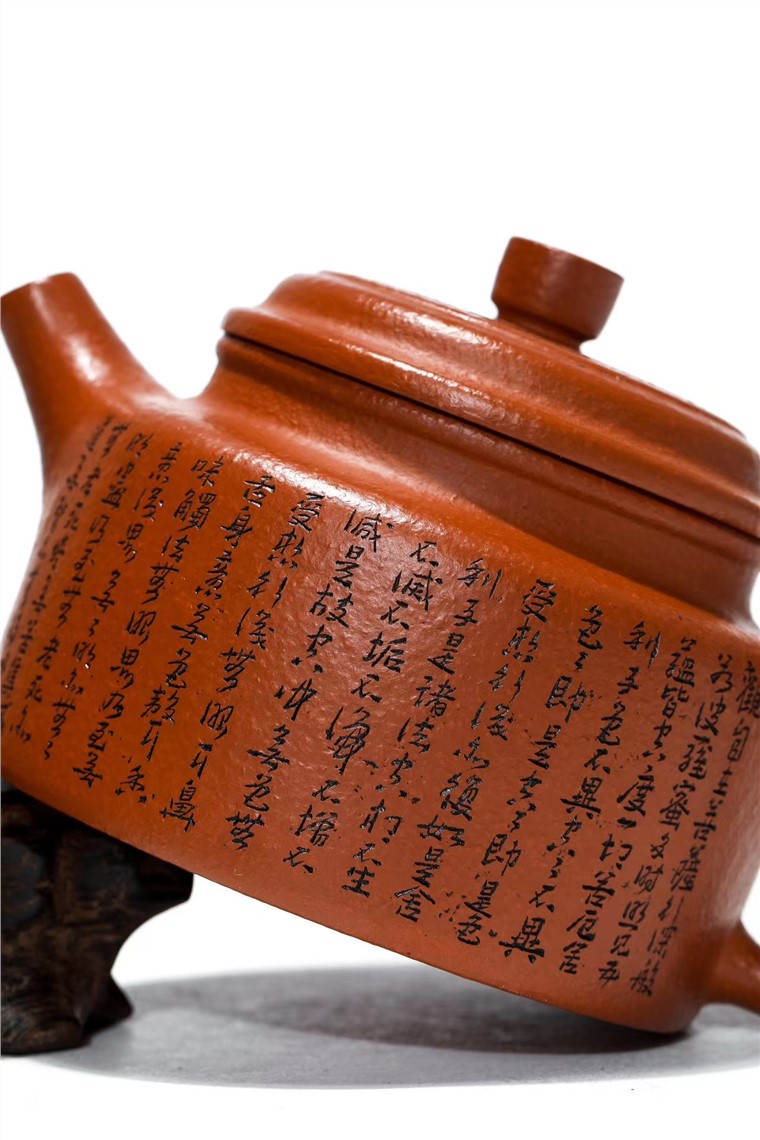 觀自在菩薩行深般
若波羅蜜多時照見五
蘊皆空度一切苦厄舍
利子色不異空空不異
色色即是空空即是色
受想行識亦復如是舍
利子是諸法空相不生
不滅不垢不淨不增不
減是故空中無色無
受想行識無眼耳鼻
舌身意無色聲香
味觸法無眼界乃至無
意識界無無明亦無無
明盡乃至無老死亦